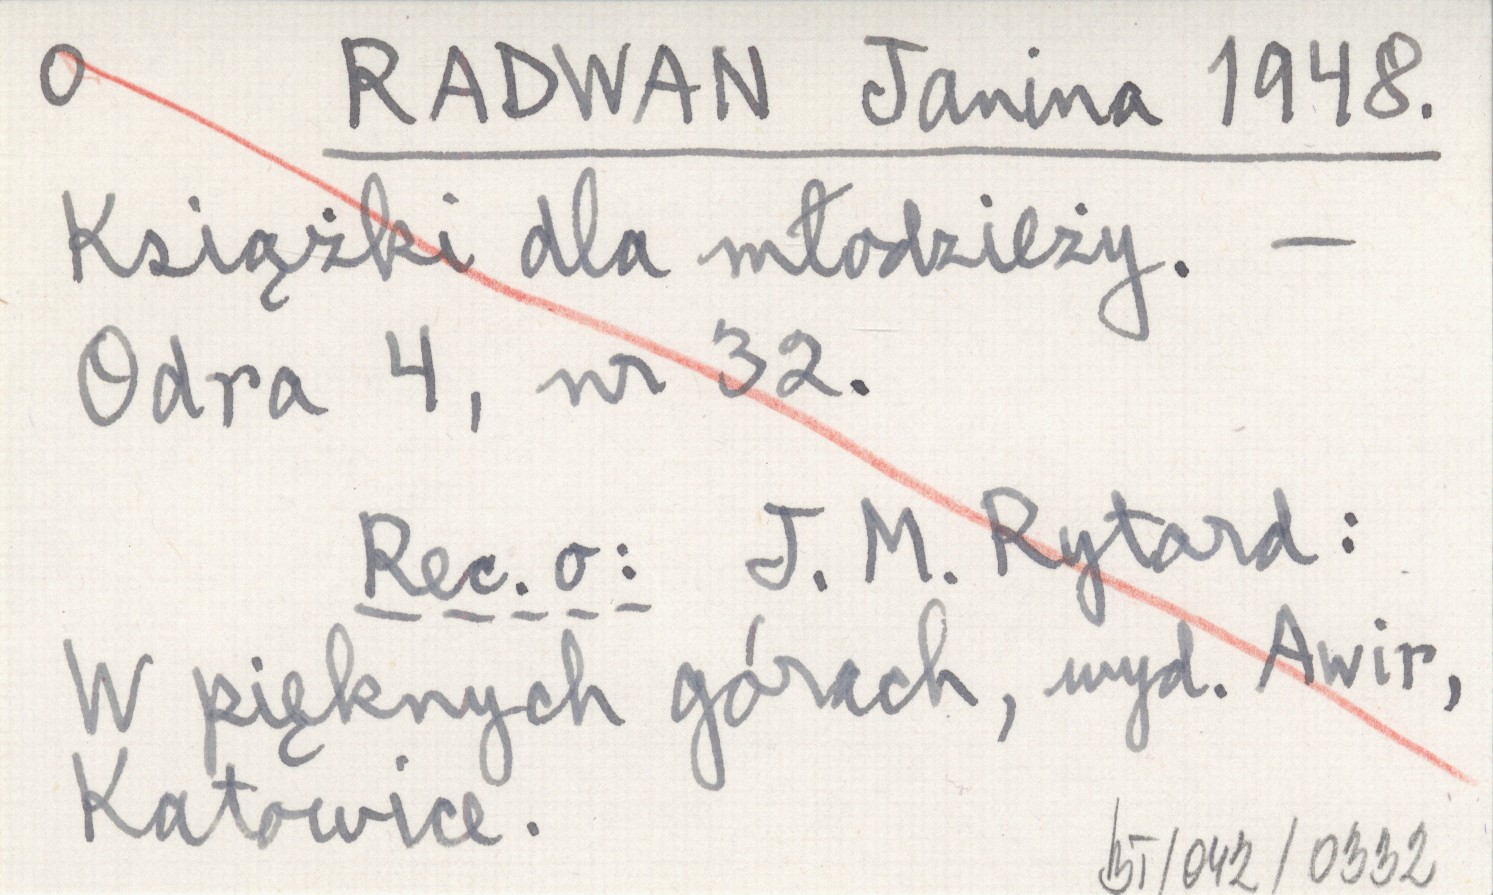 o RADWAN Janina 1948.
Książki dla młodzieży. —
Odra 4, nr 32.
Rec. o: J. M. Rytard:
W pięknych górach, wyd. Awir,
Katowice.
/042/0332